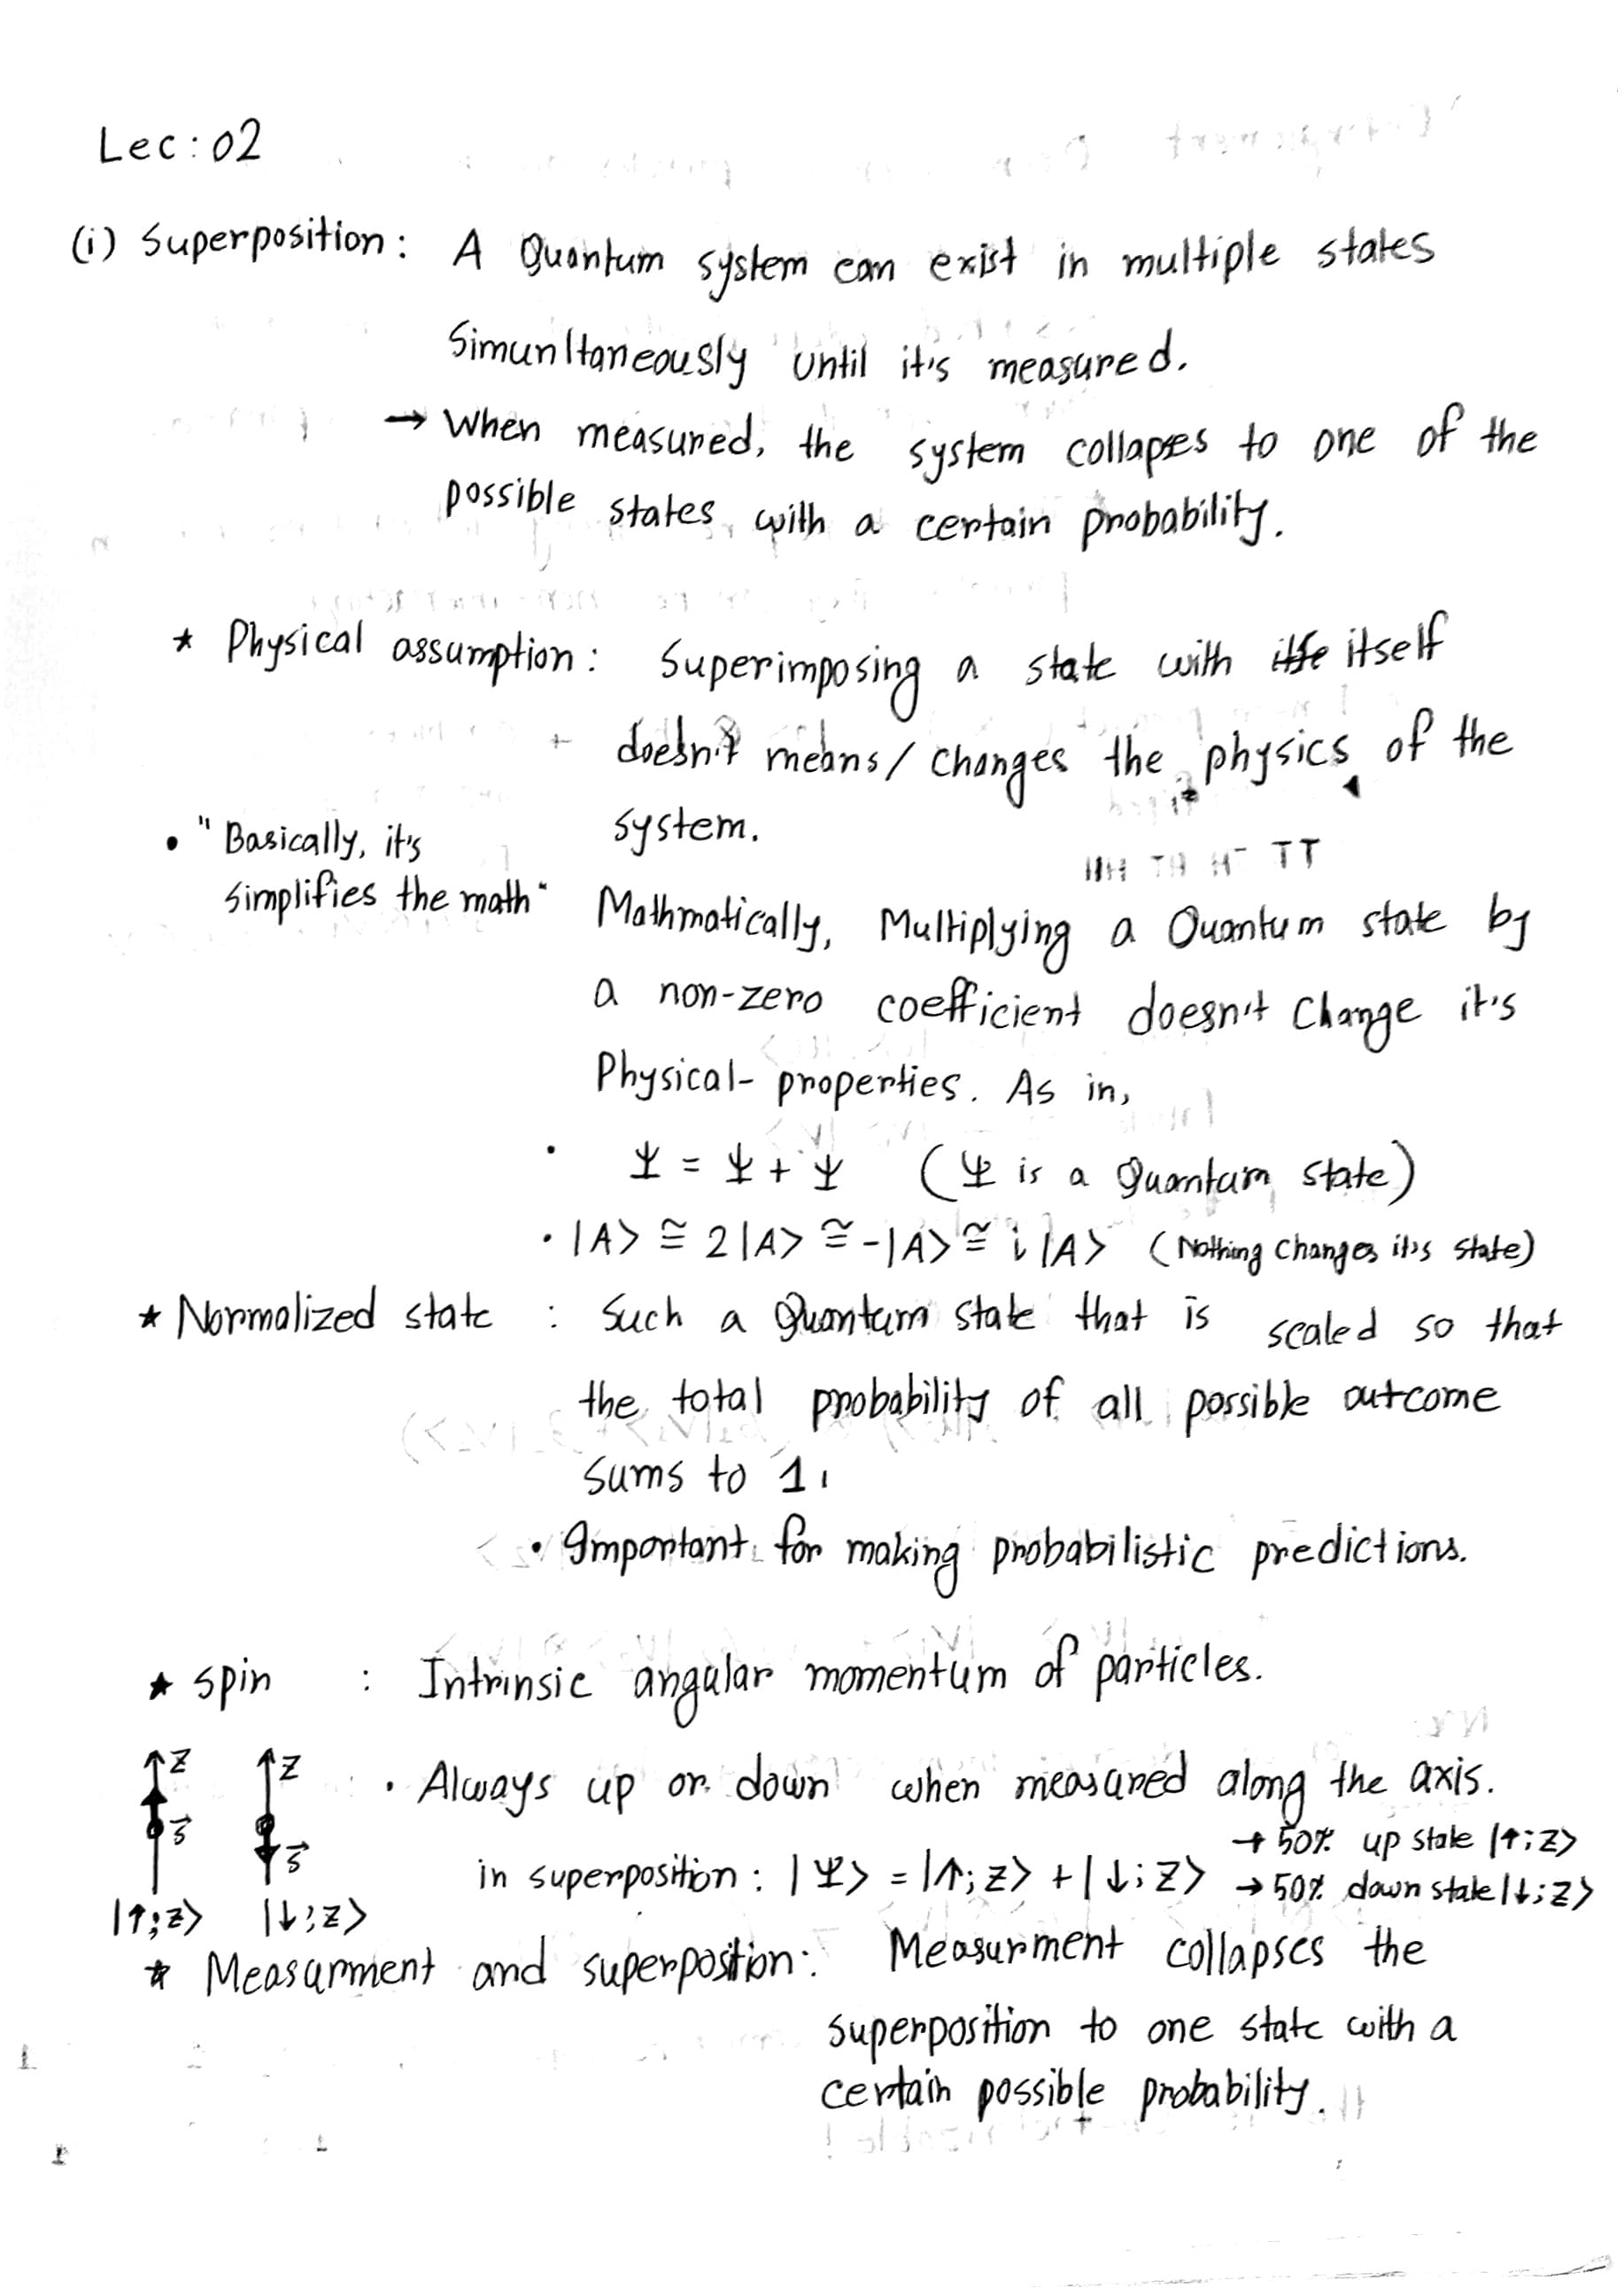 Lec: 02
(i) Superposition: A Quantum system can exist in multiple states
Simunltaneously until it's measured.
→ When measured, the system collapses to one of the
possible states with a certain probability.
* Physical assumption: Superimposing a state with itse itself
doesn't means/changes the physics of the
system.
• "Basically, it's
simplifies the math"
HH TH HT TT
Mathmatically, Multiplying a Quantum state by
a non-zero coefficient doesn't change it's
Physical- properties. As in,
• Ψ = Ψ + Ψ (Ψ is a Quantum state)
• |A> ≅ 2|A> ≅ -|A> ≅ i|A> (Nothing changes it's state)
* Normalized state : Such a Quantum state that is scaled so that
the total probability of all possible outcome
sums to 1.
• Important for making probabilistic predictions.
* spin : Intrinsic angular momentum of particles.
• Always up or down when measured along the axis.
in superposition: |Ψ> = |↑;z> + |↓;z> → 50% up state |↑;z>
→ 50% down state |↓;z>
z s⃗ |↑;z>
z s⃗ |↓;z>
* Measurment and superposition: Measurment collapses the
superposition to one state with a
certain possible probability.